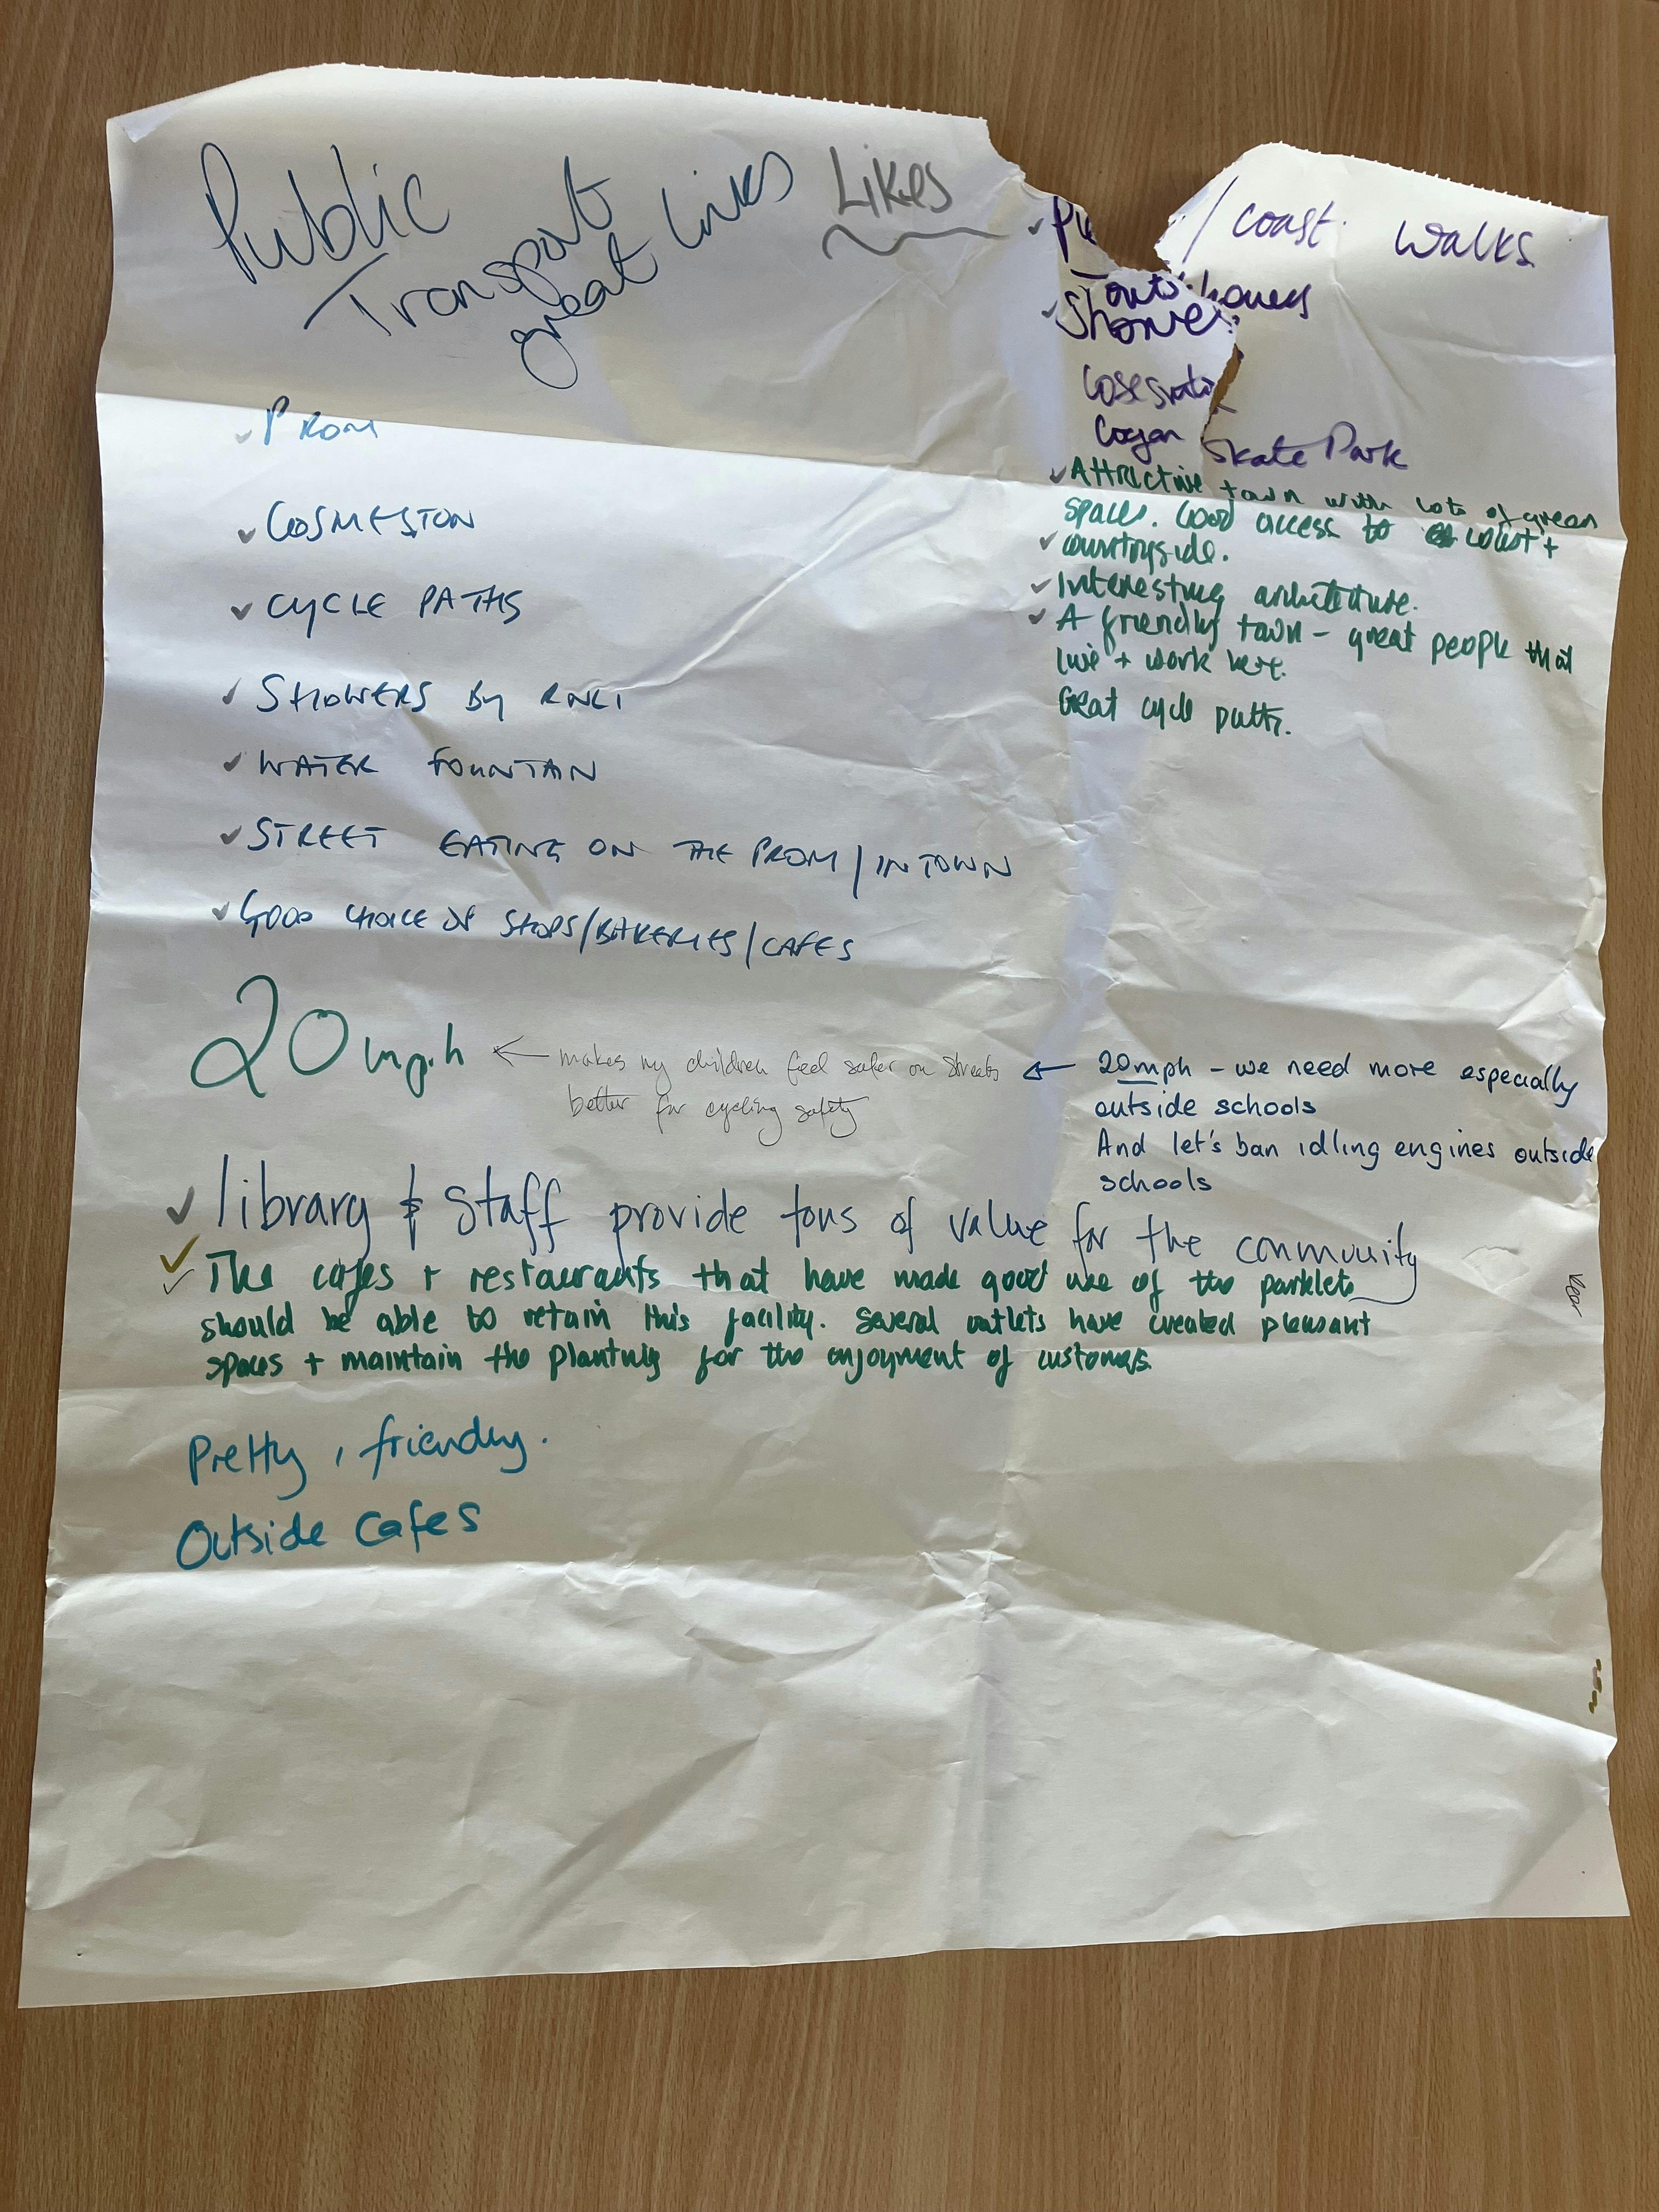 Likes
Public
Transport
great links
/ coast walks
Showe
Cogan Skate Park
✓ PROM
✓ COSMESTON
✓ CYCLE PATHS
✓ SHOWERS By RNLI
✓ WATER FOUNTAIN
✓ STREET EATING ON THE PROM / IN TOWN
✓ GOOD CHOICE OF SHOPS/BAKERIES/CAFES
✓ Attractive town with lots of green
spaces. Good access to coast +
✓ countryside.
✓ Interesting architecture.
✓ A friendly town - great people that
live + work here.
Great cycle paths.
20 mph ← makes my children feel safer on streets
better for cycling safety
← 20mph - we need more especially
outside schools
And let's ban idling engines outside
schools
✓ library & staff provide tons of value for the community
✓ The cafes + restaurants that have made good use of the parklets
should be able to retain this facility. Several outlets have created pleasant
spaces + maintain the planting for the enjoyment of customers.
Pretty, friendly.
Outside Cafes